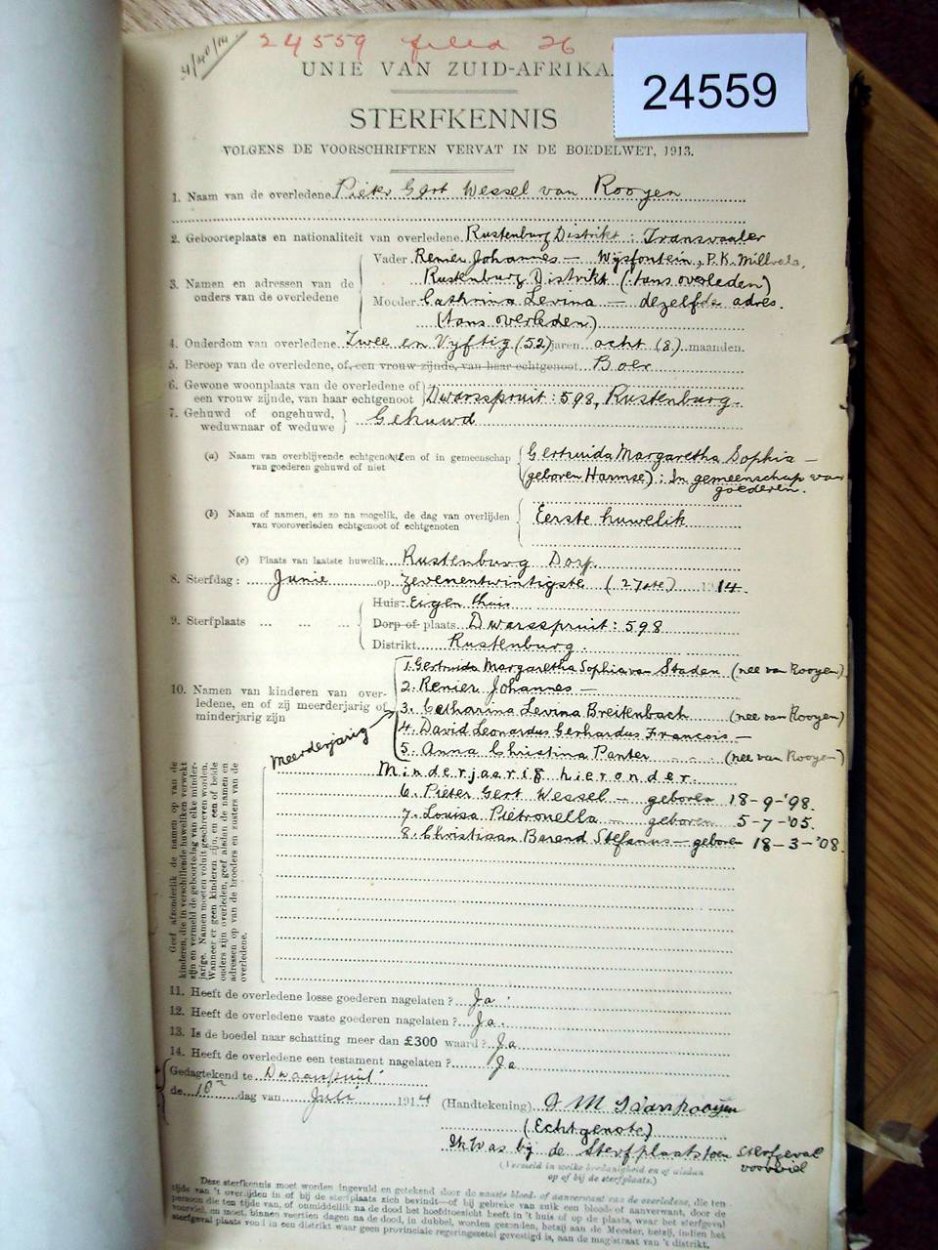 4/40/14
24559 filed 26
24559
UNIE VAN ZUID-AFRIKA.
STERFKENNIS
VOLGENS DE VOORSCHRIFTEN VERVAT IN DE BOEDELWET, 1913.
1. Naam van de overledene Pieter Gert Wessel van Rooyen
2. Geboorteplaats en nationaliteit van overledene Rustenburg Distrikt : Transvaaler
3. Namen en adressen van de ouders van de overledene
Vader Renier Johannes — Wysfontein, P.K.
Rustenburg Distrikt (tans overleden)
Moeder Catharina Levina — dezelfde adres.
(tans overleden)
4. Onderdom van overledene Twee en Vyftig (52) jaren acht (8) maanden.
5. Beroep van de overledene, of, een vrouw zijnde, van haar echtgenoot Boer
6. Gewone woonplaats van de overledene of
een vrouw zijnde, van haar echtgenoot } Dwarsspruit : 598, Rustenburg.
7. Gehuwd of ongehuwd,
weduwnaar of weduwe } Gehuwd
(a) Naam van overblijvende echtgenoten of in gemeenschap
van goederen gehuwd of niet
Gertruida Margaretha Sophia —
(geboren Harmse) : In gemeenschap van
goederen.
(b) Naam of namen, en zo na mogelik, de dag van overlijden
van vooroverleden echtgenoot of echtgenoten
Eerste huwelik
(c) Plaats van laatste huwelik Rustenburg Dorp.
8. Sterfdag : Junie op zevenentwintigste (27ste) 1914.
9. Sterfplaats ... ... ...
Huis: Eigen thuis
Dorp of plaats Dwarsspruit : 598
Distrikt Rustenburg.
10. Namen van kinderen van over-
ledene, en of zij meerderjarig of
minderjarig zijn
Meerderjarig
1. Gertruida Margaretha Sophia van Staden (nee van Rooyen)
2. Renier Johannes —
3. Catharina Levina Breitenbach (nee van Rooyen)
4. David Leonardus Gerhardus Francois —
5. Anna Christina Panter (nee van Rooyen)
Minderjaarig hieronder.
6. Pieter Gert Wessel — geboren 18-9-'98.
7. Louisa Pietronella — geboren 5-7-'05.
8. Christiaan Barend Stefanus — geboren 18-3-'08.
Geef afzonderlik de namen op van de
kinderen, die in verschillende huweliken verwekt
zijn en vermeld de geboortedag van elke minder-
jarige. Namen moeten voluit geschreven worden.
Wanneer er geen kinderen zijn, en een of beide
ouders zijn overleden, geef alsdan de namen en
adressen op van de broeders en zusters van de
overledene.
11. Heeft de overledene losse goederen nagelaten ? Ja
12. Heeft de overledene vaste goederen nagelaten ? Ja.
13. Is de boedel naar schatting meer dan £300 waard ? Ja
14. Heeft de overledene een testament nagelaten ? Ja
Gedagtekend te Dwarsspruit
de 10 dag van Juli 1914 (Handtekening) G M S van Rooijen
(Echtgenote)
Ik was bij de Sterfplaats toen sterfgeval
voorviel
(Vermeld in welke hoedanigheid en of alsdan
op of bij de sterfplaats.)
Deze sterfkennis moet worden ingevuld en getekend door de naaste bloed- of aanverwant van de overledene, die ten
tijde van 't overlijden in of bij de sterfplaats zich bevindt—of bij gebreke van zulk een bloed- of aanverwant, door de
persoon die ten tijde van, of onmiddellik na de dood het hoofdtoezicht heeft in 't huis of op de plaats, waar het sterfgeval
voorviel, en moet, binnen veertien dagen na de dood, in dubbel, worden gezonden, hetzij aan de Meester, hetzij, indien het
sterfgeval plaats vond in een distrikt waar geen provinciale regeringszetel gevestigd is, aan de magistraat van 't distrikt.